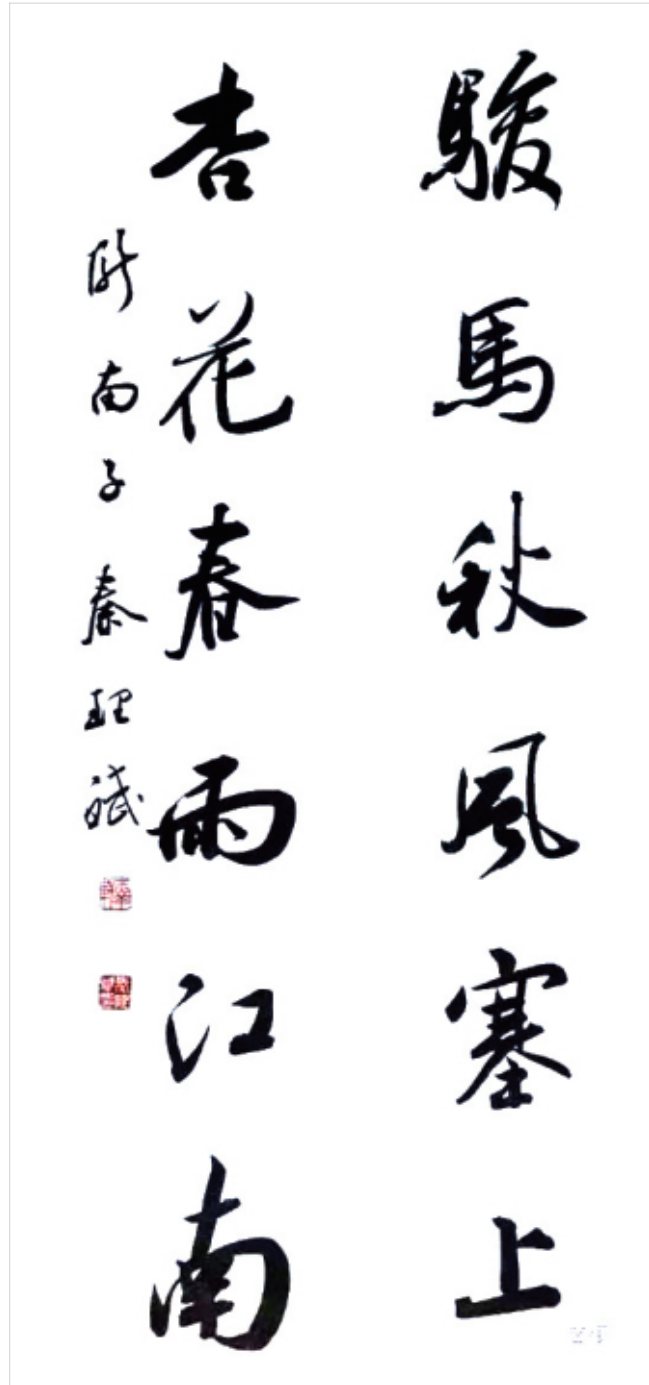 駿馬秋風塞上
杏花春雨江南
南子秦理斌